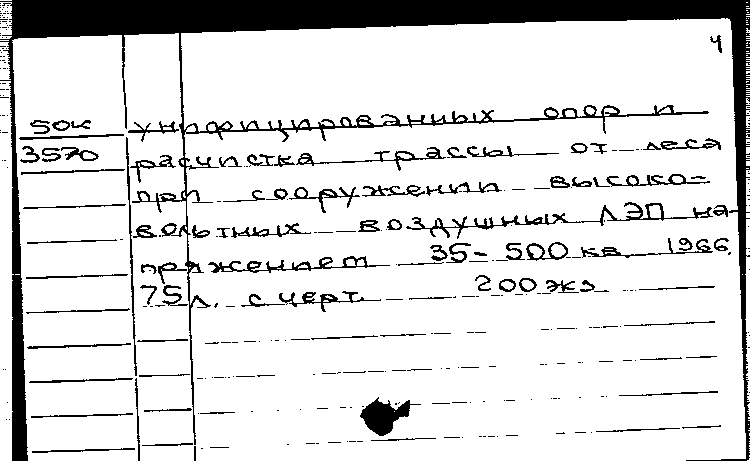 4
50к унифицированных опор и
3570 расчистка трассы от леса
при сооружении высоко=
вольтных воздушных ЛЭП на-
пряжением 35-500 кв. 1966.
75 л. с черт. 200 экз